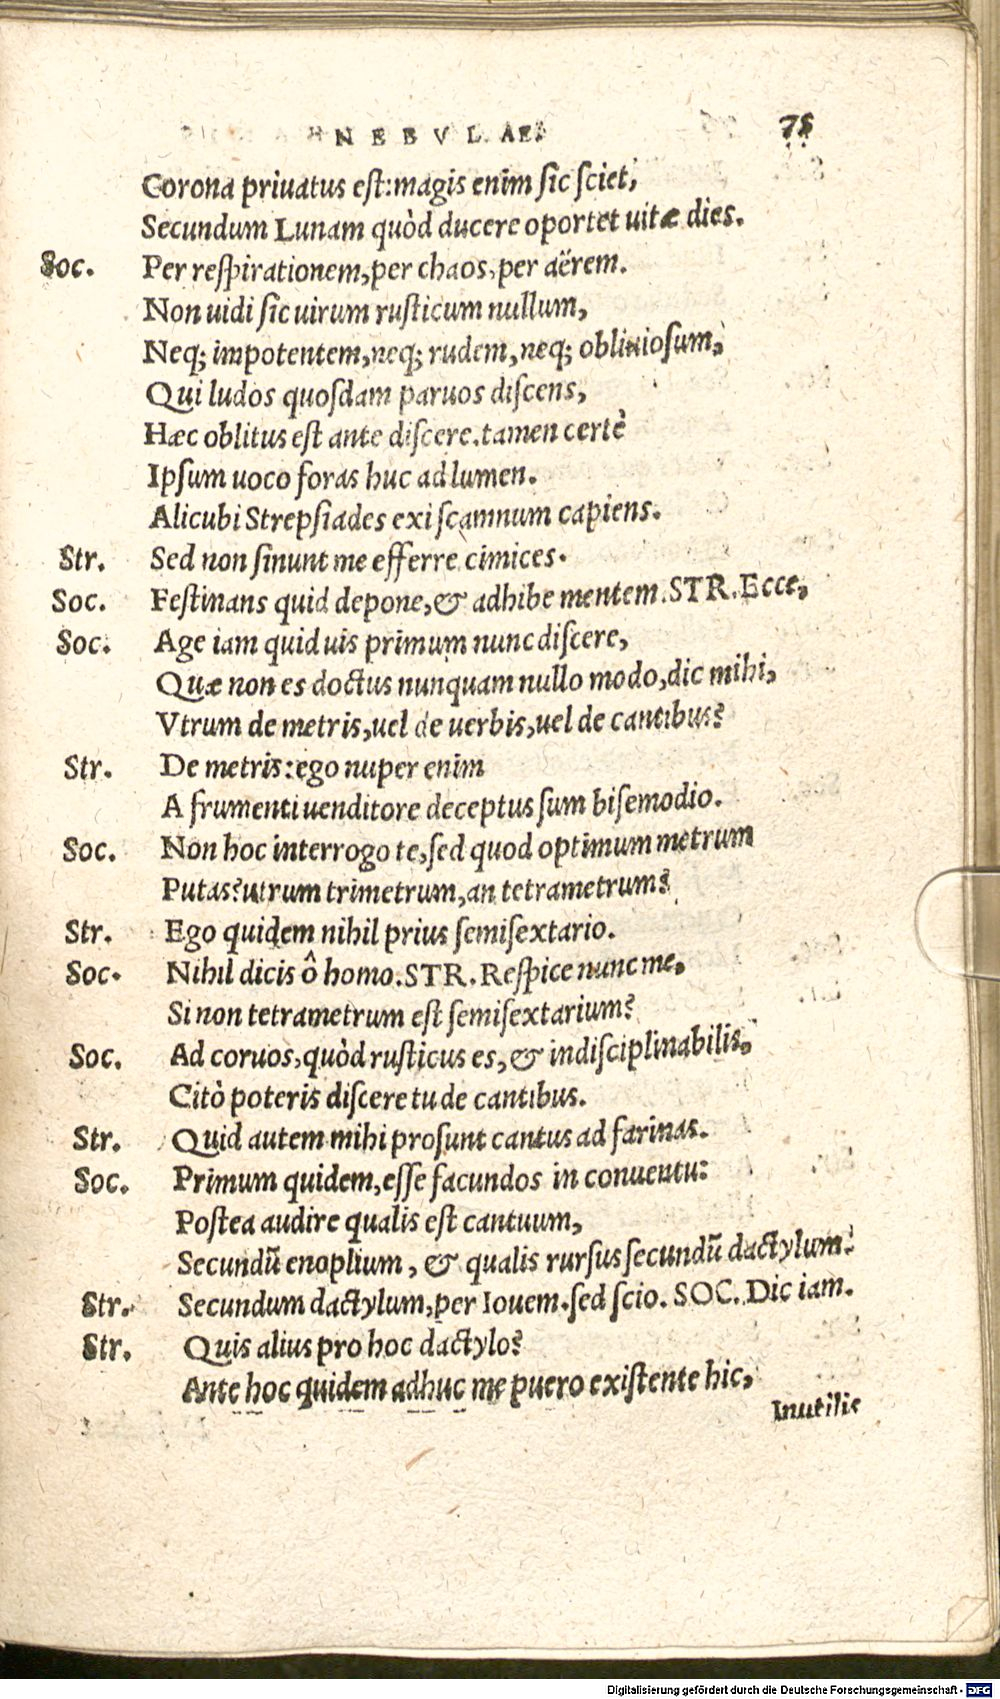 NEBVLAE 75
Corona priuatus est: magis enim sic sciet,
Secundum Lunam quòd ducere oportet uitæ dies.
Soc. Per respirationem, per chaos, per aërem.
Non uidi sic uirum rusticum nullum,
Neq; impotentem, neq; rudem, neq; obliuiosum,
Qui ludos quosdam paruos discens,
Hæc oblitus est ante discere. tamen certè
Ipsum uoco foras huc ad lumen.
Alicubi Strepsiades exi scamnum capiens.
Str. Sed non sinunt me efferre cimices.
Soc. Festinans quid depone, & adhibe mentem. STR. Ecce,
Soc. Age iam quid uis primum nunc discere,
Quæ non es doctus nunquam nullo modo, dic mihi,
Vtrum de metris, uel de uerbis, uel de cantibus?
Str. De metris: ego nuper enim
A frumenti uenditore deceptus sum bisemodio.
Soc. Non hoc interrogo te, sed quod optimum metrum
Putas? utrum trimetrum, an tetrametrum?
Str. Ego quidem nihil prius semisextario.
Soc. Nihil dicis ô homo. STR. Respice nunc me,
Si non tetrametrum est semisextarium?
Soc. Ad coruos, quòd rusticus es, & indisciplinabilis,
Citò poteris discere tu de cantibus.
Str. Quid autem mihi prosunt cantus ad farinas.
Soc. Primum quidem, esse facundos in conuentu:
Postea audire qualis est cantuum,
Secundũ enoplium, & qualis rursus secundũ dactylum?
Str. Secundum dactylum, per Iouem. sed scio. SOC. Dic iam.
Str. Quis alius pro hoc dactylo?
Ante hoc quidem adhuc me puero existente hic,
Inutilis
Digitalisierung gefördert durch die Deutsche Forschungsgemeinschaft - DFG